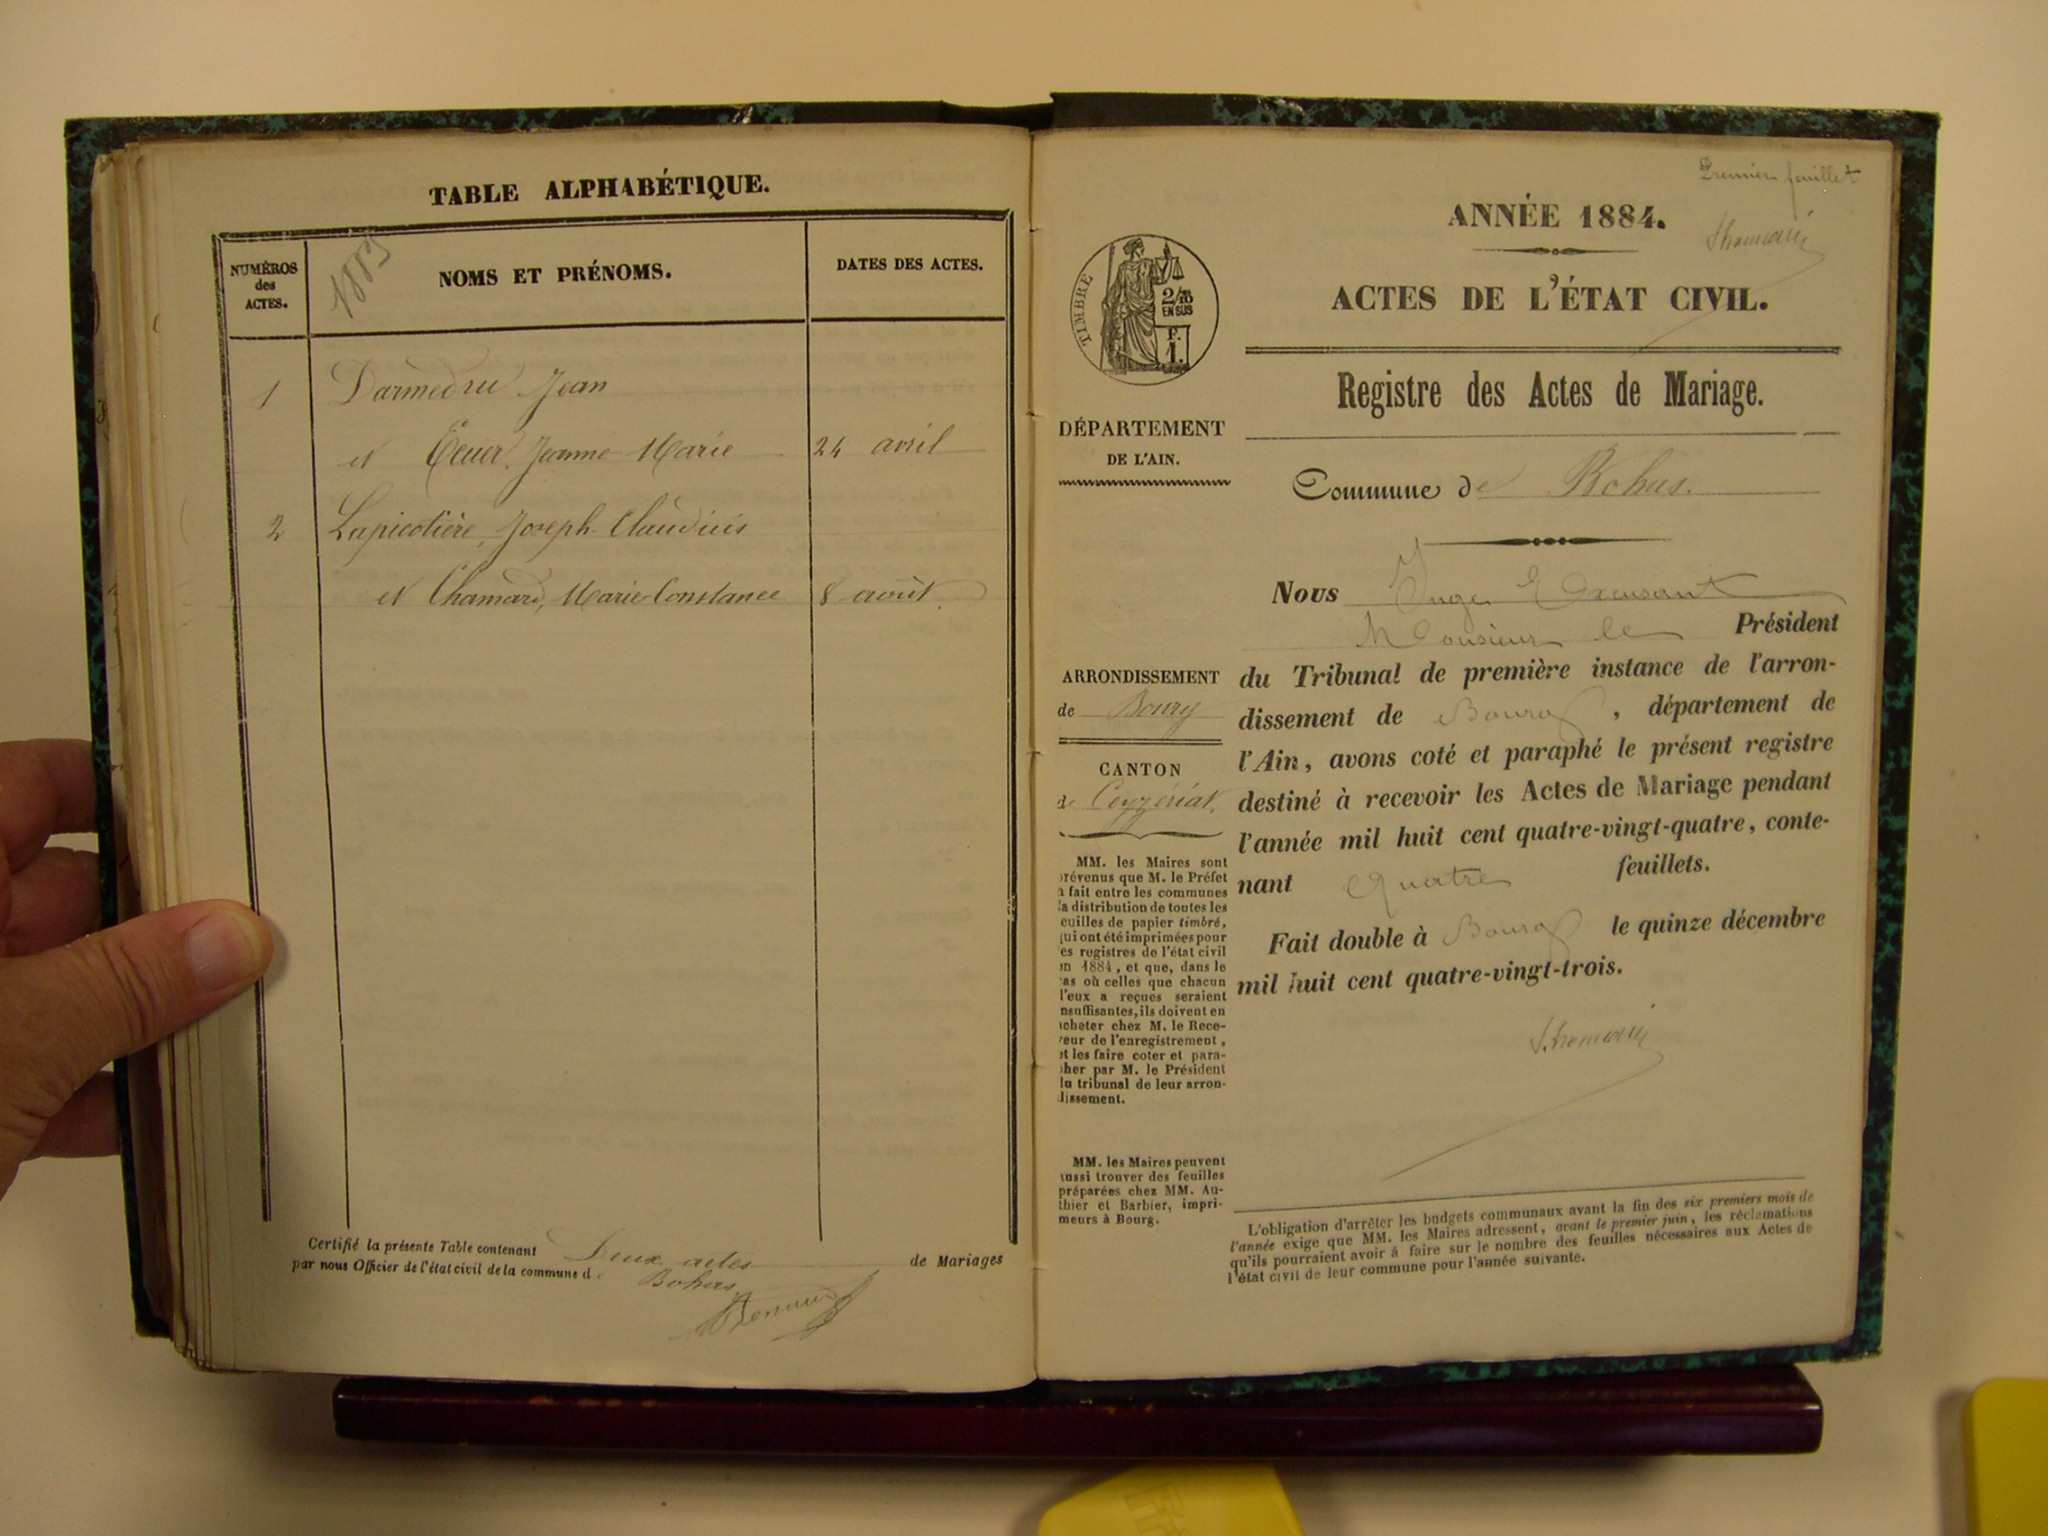 TABLE ALPHABÉTIQUE.
NUMÉROS
des
ACTES.
1883
NOMS ET PRÉNOMS.
DATES DES ACTES.
1 Darmedru Jean
et Ecuer, Jeanne Marie 24 avril
2 Lapicotière, Joseph Claudius
et Chamard, Marie Constance 8 août
Certifié la présente Table contenant Deux actes de Mariages
par nous Officier de l'état civil de la commune de Bohas
Premier feuillet
ANNÉE 1884.
ACTES DE L'ÉTAT CIVIL.
TIMBRE
2/10
EN SUS
F.
1.
Registre des Actes de Mariage.
DÉPARTEMENT
DE L'AIN.
Commune de Bohas.
Nous Juge
Monsieur le Président
du Tribunal de première instance de l'arron-
dissement de Bourg, département de
l'Ain, avons coté et paraphé le présent registre
destiné à recevoir les Actes de Mariage pendant
l'année mil huit cent quatre-vingt-quatre, conte-
nant quatre feuillets.
Fait double à Bourg le quinze décembre
mil huit cent quatre-vingt-trois.
ARRONDISSEMENT
de Bourg
CANTON
de Ceyzériat.
MM. les Maires sont
révenus que M. le Préfet
a fait entre les communes
la distribution de toutes les
euilles de papier timbré,
qui ont été imprimées pour
es registres de l'état civil
en 1884, et que, dans le
cas où celles que chacun
d'eux a reçues seraient
nsuffisantes, ils doivent en
acheter chez M. le Rece-
veur de l'enregistrement,
et les faire coter et para-
pher par M. le Président
du tribunal de leur arron-
dissement.
MM. les Maires peuvent
aussi trouver des feuilles
préparées chez MM. Au-
thier et Barbier, impri-
meurs à Bourg.
L'obligation d'arrêter les budgets communaux avant la fin des six premiers mois de
l'année exige que MM. les Maires adressent, avant le premier juin, les réclamations
qu'ils pourraient avoir à faire sur le nombre des feuilles nécessaires aux Actes de
l'état civil de leur commune pour l'année suivante.